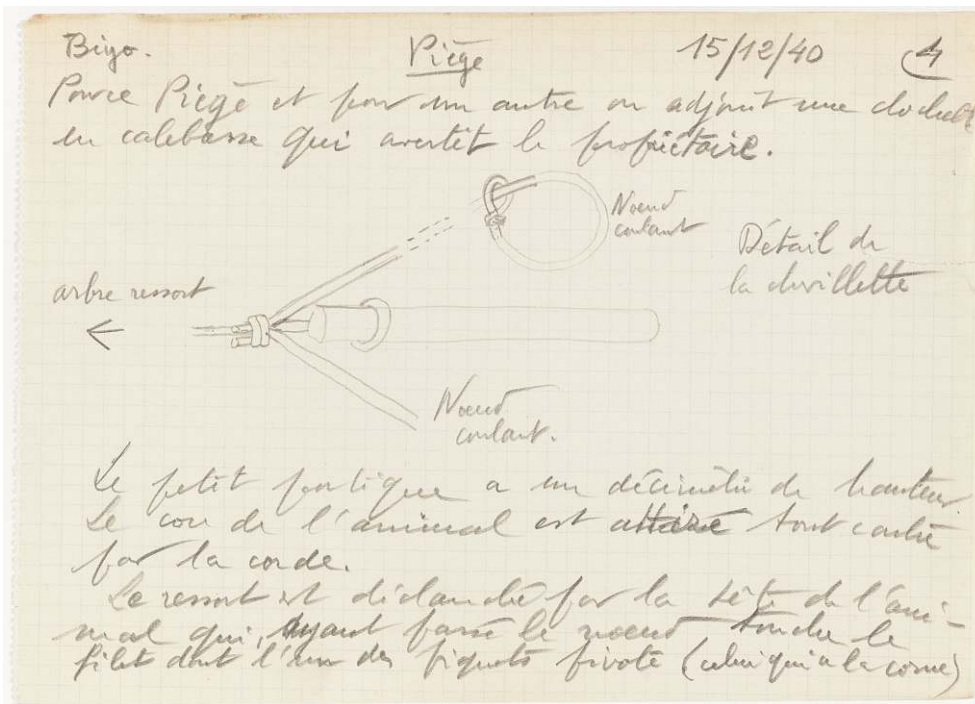 Bigo. Piège 15/12/40 4
Pour ce Piège et pour un autre on adjoint une clochette
en calebasse qui avertit le propriétaire.
Noeud
coulant
Détail de
la chevillette
arbre ressort
Noeud
coulant.
Le petit portique a un décimètre de hauteur
Le cou de l'animal est attiré tout contre
par la corde.
Le ressort est déclanché par la tête de l'ani-
mal qui, ayant passé le noeud touche le
filet dont l'un des piquets pivote (celui qui a la corne)